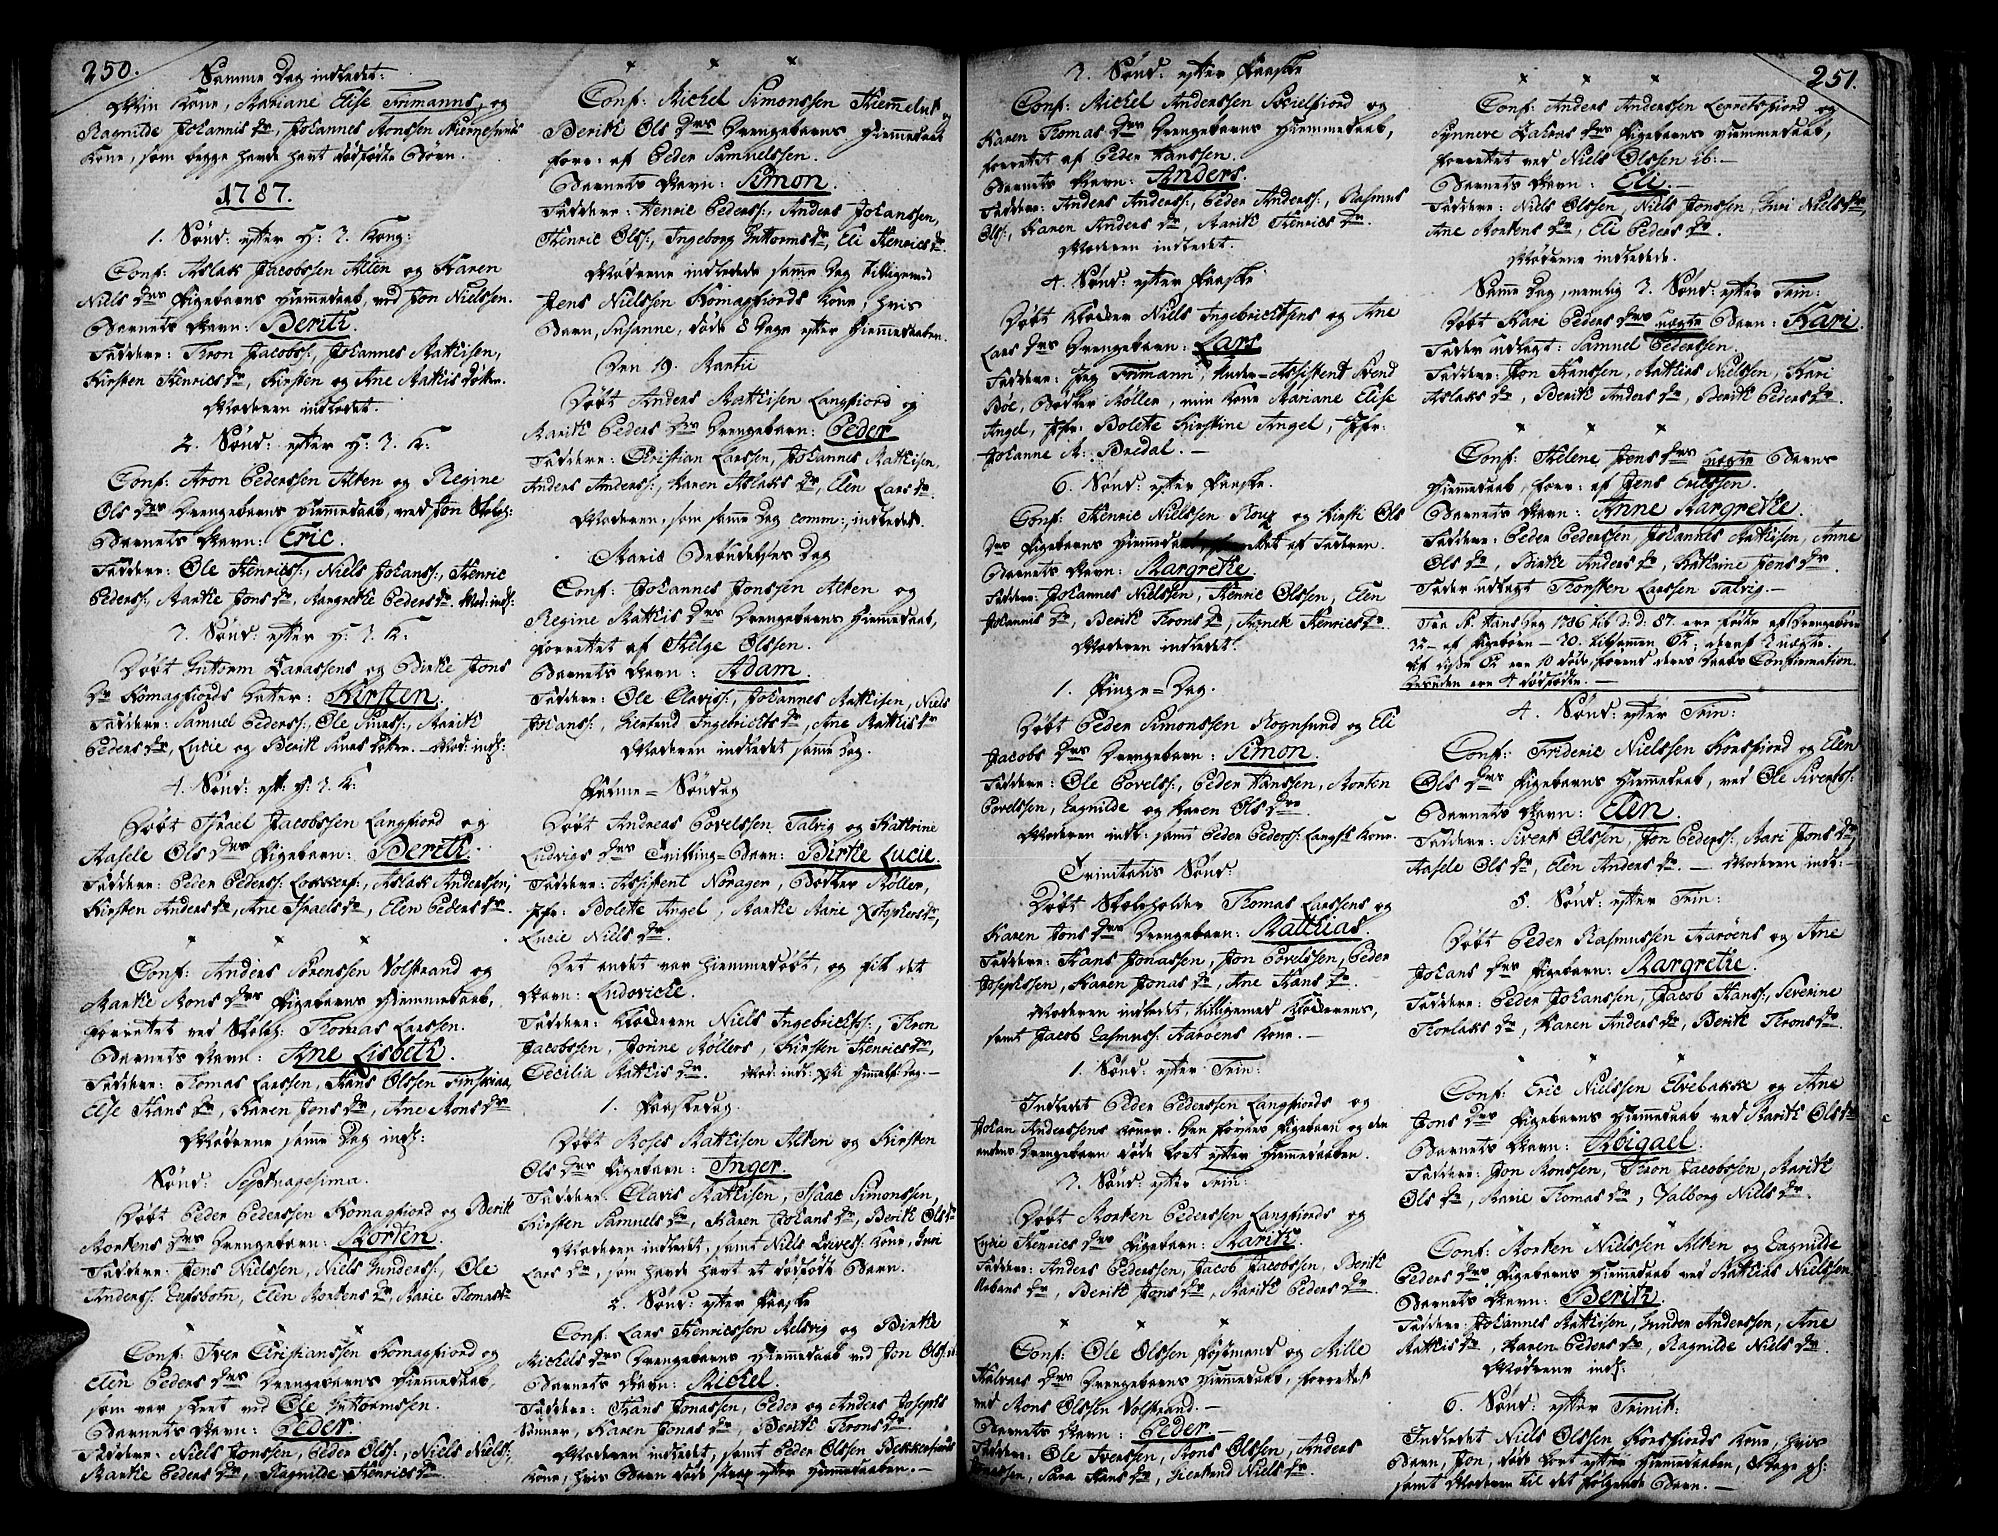 250.
Samme Dag indledet:
Min Kone, Mariane Elise Frimanns, og
Ragnilde Johannis dr, Johannes Aronssen
Kone, som begge havde havt dødfødte Børn.
1787.
1. Sønd: efter H: 3. Kong:
Conf: Aslak Jacobssen Alten og Karen
Niels drs Pigebarns Hiemmedaab, ved Jon Nielssen.
Barnets Navn: Berith.
Faddere: Thron Jacobss:, Johannes Mathisen,
Kirsten Henrics dr, Kirsten og Ane Mathis døtter.
Moderen indledet.
2. Sønd: efter H: 3. K:
Conf: Aron Pederssen Alten og Regine
Ols drs Drengebarns Hiemmedaab, ved Jon
Barnets Navn: Eric.
Faddere: Ole Henrics:, Niels Johans:, Henric
Peders:, Marthe Jons dr, Margrethe Peders dr. Mod: indl:
3. Sønd: efter H: 3. K:
Døbt Guttorm og Birthe Jons
Dr Komagfiords Datter: Kirsten.
Faddere: Samuel Peders:, Ole, Marith
Peders dr, Lucie og Berith døtter. Mod: indl:
4. Sønd: eft: H: 3. K:
Døbt Israel Jacobssen Langfiord og
Aasele Ols drs Pigebarn: Berith.
Faddere: Peder Peders:, Aslak Anderssen,
Kirsten Anders dr, Ane Israels dr, Elen Peders dr.
x x x
Conf: Anders Sørenssen Volstrand og
Marthe Mons drs Pigebarns Hiemmedaab,
forrettet ved Skoleh: Thomas Larssen.
Barnets Navn: Ane Lisbeth.
Faddere: Thomas Larssen, Hans Olssen,
Else Hans dr, Karen Jons dr, Ane Mons dr.
Mødrene samme Dag indl:
Sønd: Septuagesima.
Døbt Peder Pederssen Komagfiord og Berith
Mortens drs Drengebarn: Morten.
Faddere: Jens Nielssen, Niels Gunders:, Ole
Anders:, Elen Mortens dr, Marie Thomas dr.
x x x
Conf: Iver Christianssen Komagfiord og
Elen Peders drs Drengebarns Hiemmedaab,
som var skeet ved Ole Guttormssen.
Barnets Navn: Peder.
Faddere: Niels Jonssen, Peder Ols:, Niels Niels:,
Marthe Peders dr, Ragnilde Henrics dr.
x x x
Conf: Michel Simonssen og
Berith Ols drs Drengebarns Hiemmedaab
forr: af Peder Samuelssen.
Barnets Navn: Simon.
Faddere: Henric Peders:, Anders Johanssen,
Henric Ols:, Ingeborg Guttorms dr, Eli Henrics dr.
Mødrene indledede samme Dag tilligemed
Jens Nielssen Komagfiords Kone, hvis
Barn, Susanne, døde 8 Dage efter Hiemmedaaben.
Den 19. Martii
Døbt Anders Mathisen Langfiord og
Marith Peders drs Drengebarn: Peder
Faddere: Christian Larssen, Johannes Mathisen,
Anders Anders:, Karen Aslaks dr, Elen Lars dr.
Moderen, som samme Dag comm:, indledet.
Mariæ Bebudelses Dag
Conf: Johannes Jonssen Alten og
Regine Mathis drs Drengebarns Hiemmedaab,
forrettet af Helge Olssen.
Barnets Navn: Adam.
Faddere: Ole Clavis:, Johannes Mathisen, Niels
Johans:, Giertrud Ingebrichts dr, Ane Mathis dr
Moderen indledet samme Dag.
Palme=Søndag
Døbt Andreas Povelssen Talvig og Kathrine
Ludvigs drs Tvilling=Barn: Birthe Lucie.
Faddere: Assistent Norager, Bødker Møller,
Jfr: Bolette Angel, Marthe Marie Xstophers dr,
Lucie Niels dr.
Det andet var hiemmedøbt, og fik det
Navn: Ludovicke.
Faddere: Klokkeren Niels Ingebrichts:, Thron
Jacobssen, Jorine Møllers, Kirsten Henrics dr,
Cecilia Mathis dr. Mod: indl: Chr: Himmelf: Dag.
1. Paaskedag.
Døbt Moses Mathisen Alten og Kirsten
Ols drs Pigebarn: Inger.
Faddere: Clavis Mathisen, Isaac Simonssen,
Kirsten Samuels dr, Karen Johans dr, Berith Ols dr
Moderen indledet, samt Niels Kone, Guri
Lars dr, som havde havt et dødfødt Barn.
2. Sønd: efter Paaske
Conf: Lars Henricssen Melsvig og Birthe
Michels drs Drengebarns Hiemmedaab ved Jon Ols:
Barnets Navn: Michel.
Faddere: Hans Jonassen, Peder og Anders Josephs
sønner, Karen Jonas dr, Berith Throns dr
Moderen indledet, samt Peder Olssen Bekkerfiords
Kone, hvis Barn døde strax efter Hiemmedaaben.
3. Sønd: efter Paaske
Conf: Michel Anderssen og
Karen Thomas drs Drengebarns Hiemmedaab,
forrettet af Peder Hanssen.
Barnets Navn: Anders.
Faddere: Anders Anders:, Peder Anders:, Rasmus
Ols:, Karen Anders dr, Marith Henrics dr.
Moderen indledet.
4. Sønd: efter Paaske
Døbt Klokker Niels Ingebrichtsens og Ane
Lars drs Drengebarn: Lars
Faddere: Jeg Frimann, Under=Assistent Svend
Bøe, Bødker Møller, min Kone Mariane Elise
Angel, Jfr: Bolette Kirstine Angel, Jfr:
Johanne M: Bredal.
6. Sønd: efter Paaske.
Conf: Henric Nielssen og Kirsti Ols
drs Pigebarns Hiemmedaab af Faderen.
Barnets Navn: Margrethe.
Faddere: Johannes Nielssen, Henric Olssen, Elen
Johannis dr, Berith Throns dr, Henrics dr.
Moderen indledet.
1. Pinze=Dag.
Døbt Peder Simonssen Rognsund og Eli
Jacobs drs Drengebarn: Simon.
Faddere: Ole Povels:, Peder Hanssen, Morten
Povelssen, Ragnilde og Karen Ols dr.
Moderen indl: samt Peder Peders: Langf: Kone.
Trinitatis Sønd:
Døbt Skoleholder Thomas Larssens og
Karen Jons drs Drengebarn: Matthias.
Faddere: Hans Jonassen, Jon Povelssen, Peder
Josephssen, Karen Jonas dr, Ane Hans dr.
Moderen indledet, tilligemed Klokkerens,
samt Jacob Rasmus: Aarøens Kone.
1. Sønd: efter Trin:
Indledet Peder Pederssen Langfiords og
Johan Anderssens Koner. Den førstes Pigebarn og den
andens Drengebarn døde kort efter Hiemmedaaben.
3. Sønd: efter Trin:
Døbt Morten Pederssen Langfiords og
Lucie Henrics drs Pigebarn: Marith.
Faddere: Anders Pederssen, Jacob Jacobssen, Berith
dr, Berith Jons dr, Marith Peders dr.
x x x
Conf: Ole Olssen og Mille
Halvors drs Drengebarns Hiemmedaab, forrettet
ved Mons Olssen Volstrand.
Barnets Navn: Peder.
Faddere: Ole Iverssen, Mons Olssen, Anders
Sara Hans dr, Giertrud Niels dr.
251.
x x x
Conf: Anders Anderssen Lerretsfiord og
Synnere drs Pigebarns Hiemmedaab,
forrettet ved Niels Olssen ib:
Barnets Navn: Eli.
Faddere: Niels Olssen, Niels Jonssen, Guri Niels dr,
Ane Mortens dr, Eli Peders dr.
Mødrene indledede.
Samme Dag, nemlig 3. Sønd: efter Trin:
Døbt Kari Peders drs uægte Barn: Kari.
Fader udlagt: Samuel Pederssen.
Faddere: Jon Hanssen, Mathias Nielssen, Kari
Aslaks dr, Berith Anders dr, Berith Peders dr.
x x x
Conf: Helene Jens drs uægte Barns
Hiemmedaab, forr: af Jens Ericssen.
Barnets Navn: Anne Margrethe.
Faddere: Peder Pederssen, Johannes Mathisen, Anne
Ols dr, Birthe Anders dr, Kathrine Jens dr.
Fader udlagt Thorsten Larssen Talvig.
Fra St. Hans Dag 1786 til d. d. 87. ere fødte af Drengebørn
32 af Pigebørn 30. tilsammen 62, deraf 3 uægte.
Af disse 62 ere 10 døde, førend deres Daabs Confirmation.
Desuden ere 4 dødfødte.
4. Sønd: efter Trin:
Conf: Frideric Nielssen Korsfiord og Elen
Ols drs Pigebarns Hiemmedaab, ved Ole Siverts:
Barnets Navn: Elen
Faddere: Sivert Olssen, Jon Peders:, Mari Jons dr,
Aasele Ols dr, Elen Anders dr. Moderen indl:
5. Sønd: efter Trin:
Døbt Peder Rasmussen Aarøens og Ane
Johans drs Pigebarn: Margrethe.
Faddere: Peder Johanssen, Jacob Hans:, Severine
Thorlaks dr, Karen Anders dr, Berith Throns dr.
x x x
Conf: Eric Nielssen Elvebakke og Ane
Jons drs Pigebarns Hiemmedaab ved Marith Ols dr
Barnets Navn: Abigael.
Faddere: Jon Monssen, Thron Jacobssen, Marith
Ols dr, Marie Thomas dr, Valborg Niels dr.
x x x
Conf: Morten Nielssen Alten og Ragnilde
Peders drs Pigebarns Hiemmedaab ved Mathias Nielssen.
Barnets Navn: Berith.
Faddere: Johannes Mathisen, Gunder Anderssen, Ane
Mathis dr, Karen Peders dr, Ragnilde Niels dr.
Mødrene indl:
6. Sønd: efter Trinit:
Indledet Niels Olssen Korsfiords Kone, hvis
Barn, Jon, døde kort efter Hiemmedaaben,
samt Moderen til det følgende Barn.